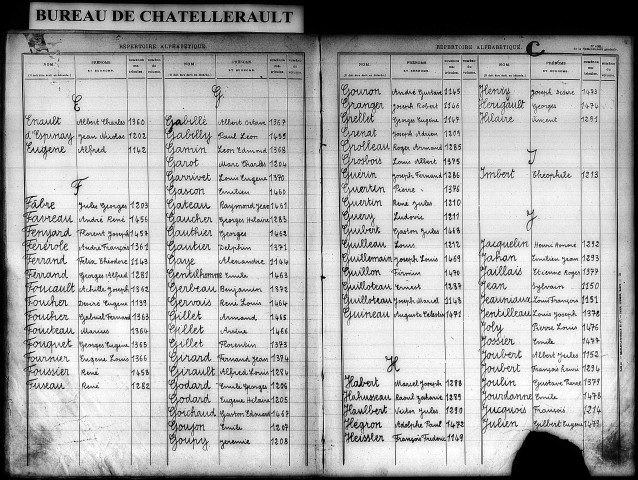 BUREAU DE CHATELLERAULT
RÉPERTOIRE ALPHABÉTIQUE.
NOM. PRÉNOMS
E
Enault Albert Charles 1360
d'Espinay Jean Nicolas 1202
Eugène Alfred 1142
F
Fabre Jules Georges 1203
Favreau André René 1456
Fenyard Florent Joseph 1457
Férérole André François 1361
Ferrand Felix Théodore 1143
Ferrand Georges Alfred 1281
Foucault Achille Joseph 1362
Foucher Désiré Eugène 1199
Foucher Gabriel Fernand 1363
Foucteau Marius 1364
Fouquet Georges Eugène 1365
Fournier Eugène Louis 1366
Foussier René 1458
Fuseau René 1282
G
Gabillé Albert Octave 1367
Gabilly Paul Léon 1459
Gamin Léon Edmond 1368
Garot Marc Charles 1204
Garrivet Louis Eugène 1370
Gascon Emilien 1460
Gateau Raymond José 1461
Gaucher Georges Hilaire 1283
Gauthier Georges 1462
Gautier Delphin 1371
Gaye Alexandre 1144
Gentilhomme Emile 1463
Gerbeau Benjamin 1372
Gervais René Louis 1464
Gillet Armand 1465
Gillet 1466
Gillet Florentin 1373
Girard Fernand Jean 1374
Girault Alfred Louis 1284
Godard Emile Georges 1206
Godard Eugène Hilaire 1205
Goichaud Gaston Edouard 1467
Goujon Emile 1207
Goupy Jérémie 1208
RÉPERTOIRE ALPHABÉTIQUE.
C
NOM. PRÉNOMS
Gouron André Gustave 1145
Granger Joseph Robert 1146
Grellet Georges Eugène 1147
Grenat Joseph Adrien 1209
Grolleau Roger Armand 1285
Grosbois Louis Albert 1375
Guérin Joseph Fernand 1286
Guertin Pierre 1376
Guertin René Jules 1210
Guery Ludovic 1211
Guibert Gaston Jules 1468
Guilleau Louis 1212
Guillemain Joseph Louis 1469
Guillon Firmin 1470
Guilloteau Ernest 1287
Guilloteau Joseph Marcel 1148
Guineau Auguste Célestin 1471
H
Habert Marcel Joseph 1288
Hahusseau Raoul Zacharie 1289
Haulbert Victor Jules 1290
Hegron Adolphe Paul 1472
Heissler François Frédéric 1149
Henry Joseph Désiré 1473
Herigault Georges 1474
Hilaire Vincent 1291
I
Imbert Théophile 1213
J
Jacquelin Henri Aimare 1292
Jahan Emilien Jean 1293
Jaillais Etienne Roger 1377
Jean Sylvain 1150
Jeauniaux Louis François 1151
Jentilleau Louis Joseph 1378
Joly Pierre Louis 1476
Jossier Emile 1477
Joubert Albert Jules 1152
Joubert François Remi 1294
Joulin Gustave Pierre 1379
Jourdanne Emile 1478
Jucquois François 1214
Julien Gilbert Eugène 1479